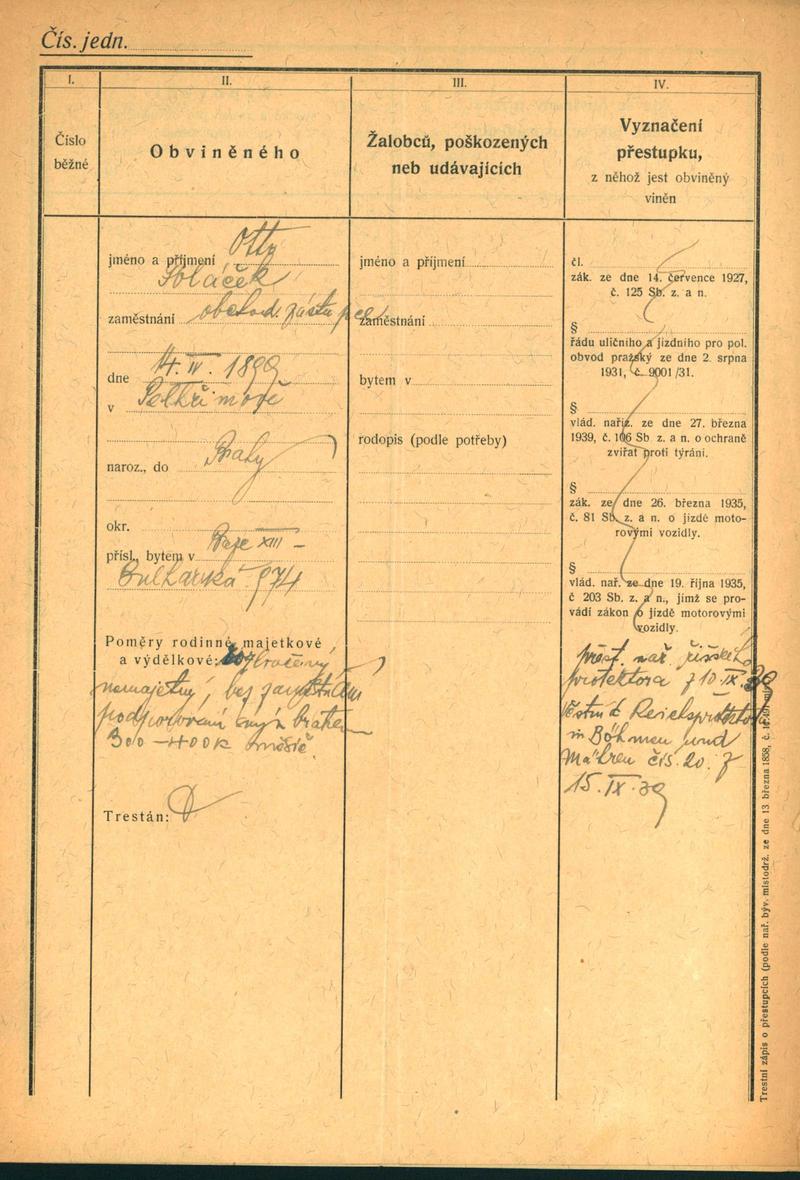 Čís. jedn.
I.
II.
III.
IV.
Číslo
běžné
Obviněného
Žalobců, poškozených
neb udávajících
Vyznačení
přestupku,
z něhož jest obviněný
viněn
jméno a příjmení Otto
Poláček
zaměstnání obchod. zástupce
dne 14. IV. 1899
v Pelhřimově
naroz., do Prahy
okr.
přísl., bytem v Praze XIII –
Bulharská 974
Poměry rodinné, majetkové
a výdělkové:
nemajetný, bez zaměstnání
podporován bratrem
300–400 K měsíč.
Trestán:
jméno a příjmení
zaměstnání
bytem v
rodopis (podle potřeby)
čl.
zák. ze dne 14. července 1927,
č. 125 Sb. z. a n.
§
řádu uličního a jízdního pro pol.
obvod pražský ze dne 2. srpna
1931, č. 9001/31.
§
vlád. nařiz. ze dne 27. března
1939, č. 106 Sb z. a n. o ochraně
zvířat proti týrání.
§
zák. ze dne 26. března 1935,
č. 81 Sb. z. a n. o jízdě moto-
rovými vozidly.
§
vlád. nař. ze dne 19. října 1935,
č 203 Sb. z. a n., jímž se pro-
vádí zákon o jízdě motorovými
vozidly.
přest. nař. říšského
protektora z 10. IX. 39
Věstník Reichsprotektors
in Böhmen und
Mähren čís. 20. z
15. IX. 39
Trestní zápis o přestupcích (podle nař. býv. místodrž. ze dne 13 března 1858, č.